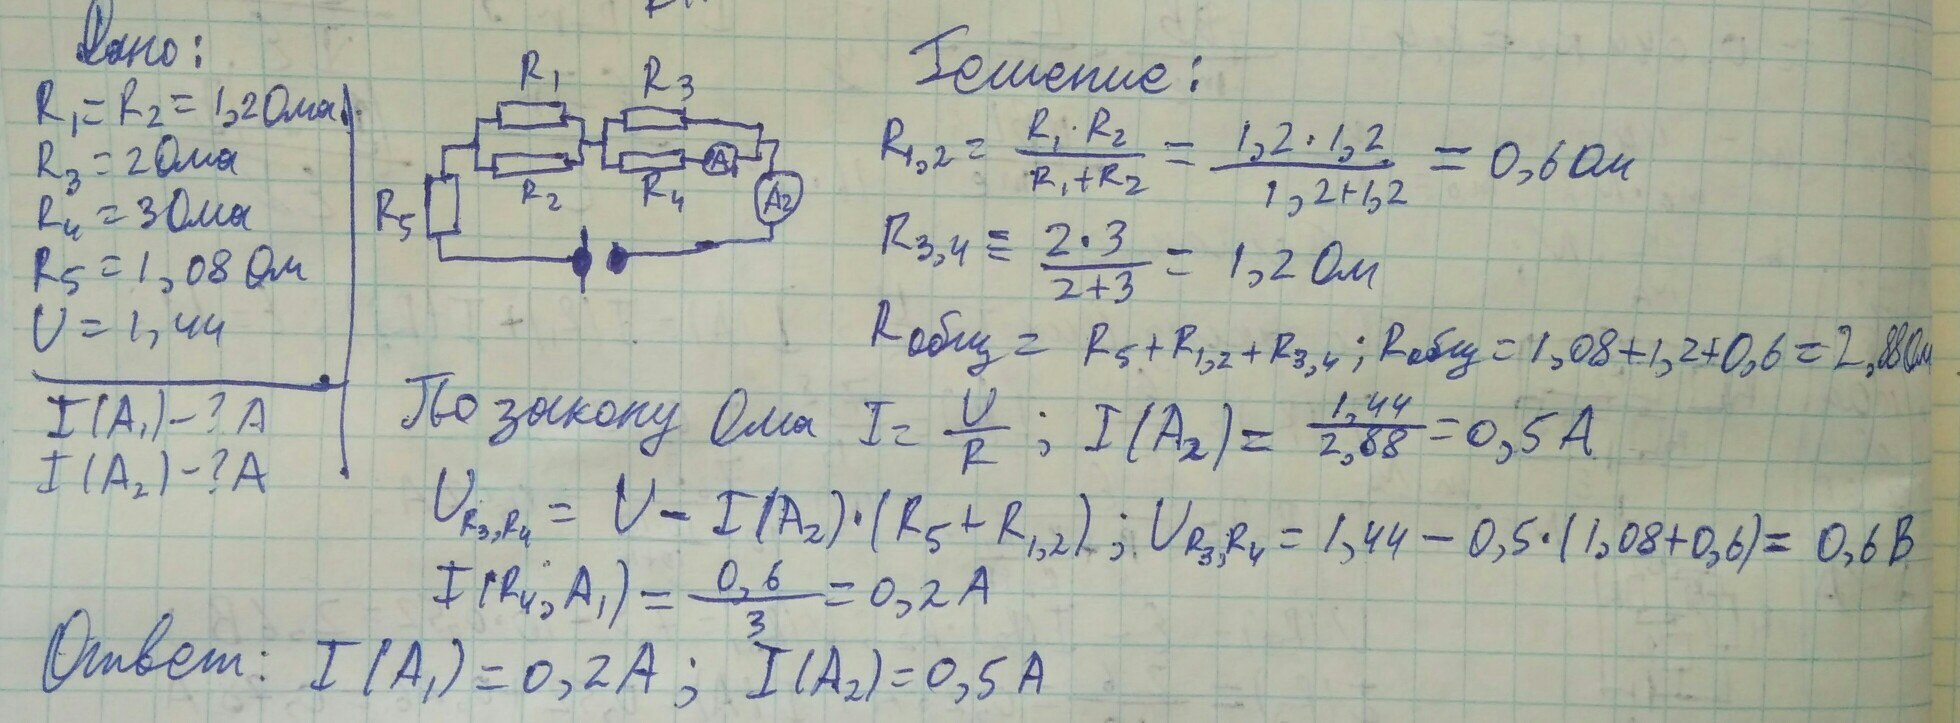 Дано:
R₁ = R₂ = 1,2 Ома
R₃ = 2 Ома
R₄ = 3 Ома
R₅ = 1,08 Ом
U = 1,44
I(A₁) - ? A
I(A₂) - ? A
R₁ R₃
R₂ R₄ A
R₅ A₂
Решение:
R₁,₂ = R₁·R₂ / R₁+R₂ = 1,2·1,2 / 1,2+1,2 = 0,6 Ом
R₃,₄ = 2·3 / 2+3 = 1,2 Ом
Rобщ = R₅+R₁,₂+R₃,₄; Rобщ = 1,08+1,2+0,6 = 2,88 Ом
По закону Ома I = U/R; I(A₂) = 1,44 / 2,88 = 0,5 A
U R₃,R₄ = U - I(A₂)·(R₅+R₁,₂); U R₃,R₄ = 1,44 - 0,5·(1,08+0,6) = 0,6 В
I(R₄,A₁) = 0,6 / 3 = 0,2 A
Ответ: I(A₁) = 0,2 A; I(A₂) = 0,5 A